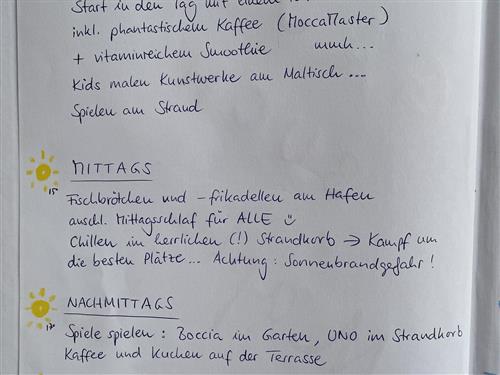 Start in den Tag mit einem
inkl. phantastischem Kaffee (MoccaMaster)
+ vitaminreichem Smoothie mmh...
Kids malen Kunstwerke am Maltisch ....
Spielen am Strand
MITTAGS
15
Fischbrötchen und -frikadellen am Hafen
anschl. Mittagsschlaf für ALLE ☺
Chillen im herrlichen (!) Strandkorb → Kampf um
die besten Plätze... Achtung: Sonnenbrandgefahr!
NACHMITTAGS
Spiele spielen: Boccia im Garten, UNO im Strandkorb
Kaffee und Kuchen auf der Terrasse